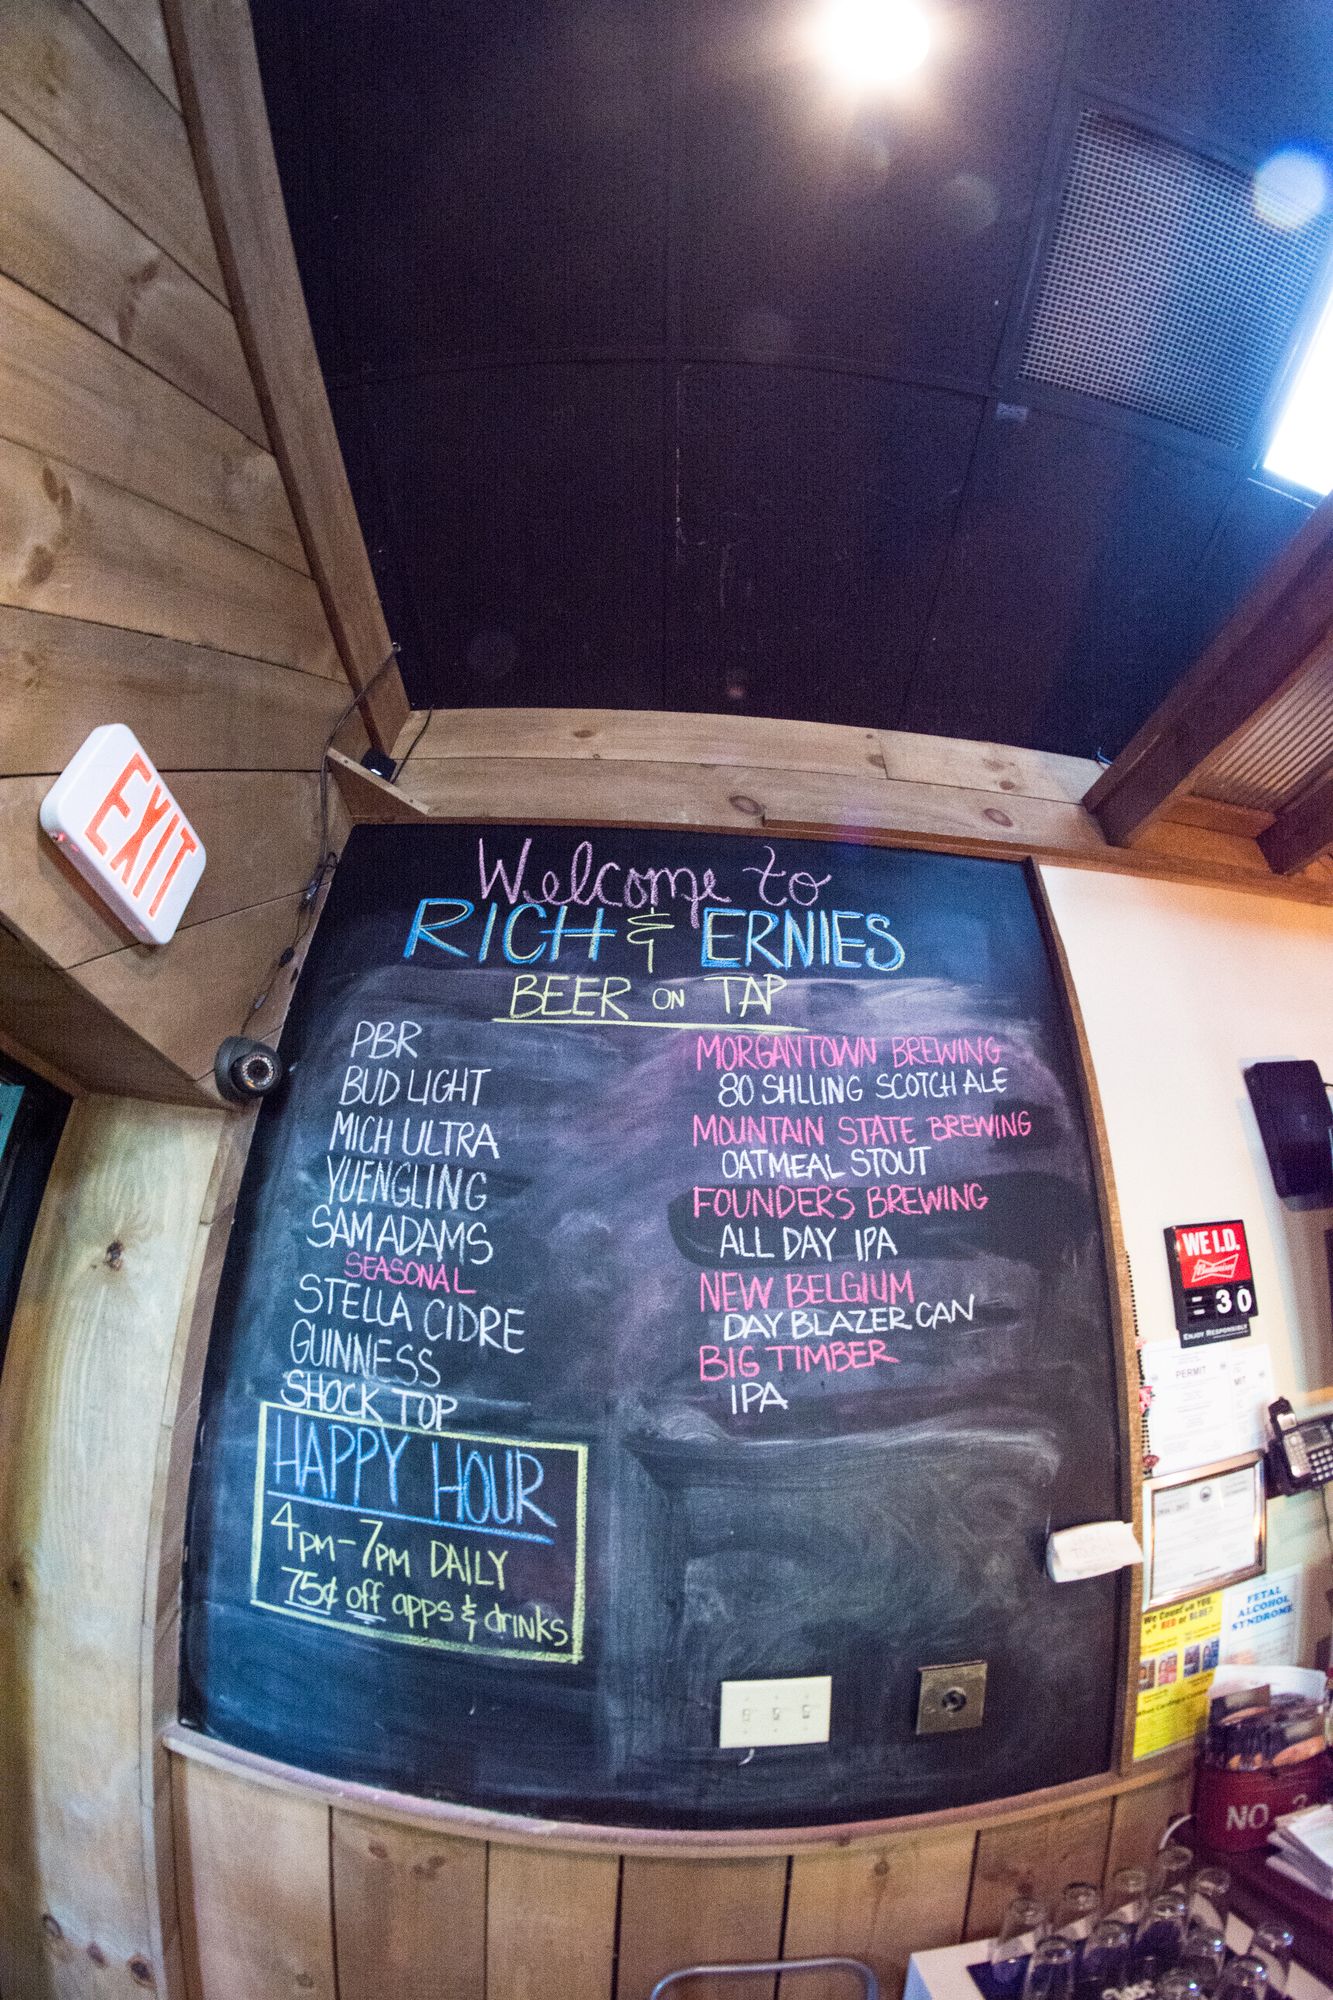 EXIT
Welcome to
RICH & ERNIES
BEER ON TAP
PBR
BUD LIGHT
MICH ULTRA
YUENGLING
SAM ADAMS
SEASONAL
STELLA CIDRE
GUINNESS
SHOCK TOP
HAPPY HOUR
4PM-7PM DAILY
75¢ off apps & drinks
MORGANTOWN BREWING
80 SHLLING SCOTCH ALE
MOUNTAIN STATE BREWING
OATMEAL STOUT
FOUNDERS BREWING
ALL DAY IPA
NEW BELGIUM
DAY BLAZER CAN
BIG TIMBER
IPA
WE I.D.
Budweiser
30
ENJOY RESPONSIBLY
PERMIT
MIT
FETAL
ALCOHOL
SYNDROME
We Count on YOU.
RED or BLUE?
NO.